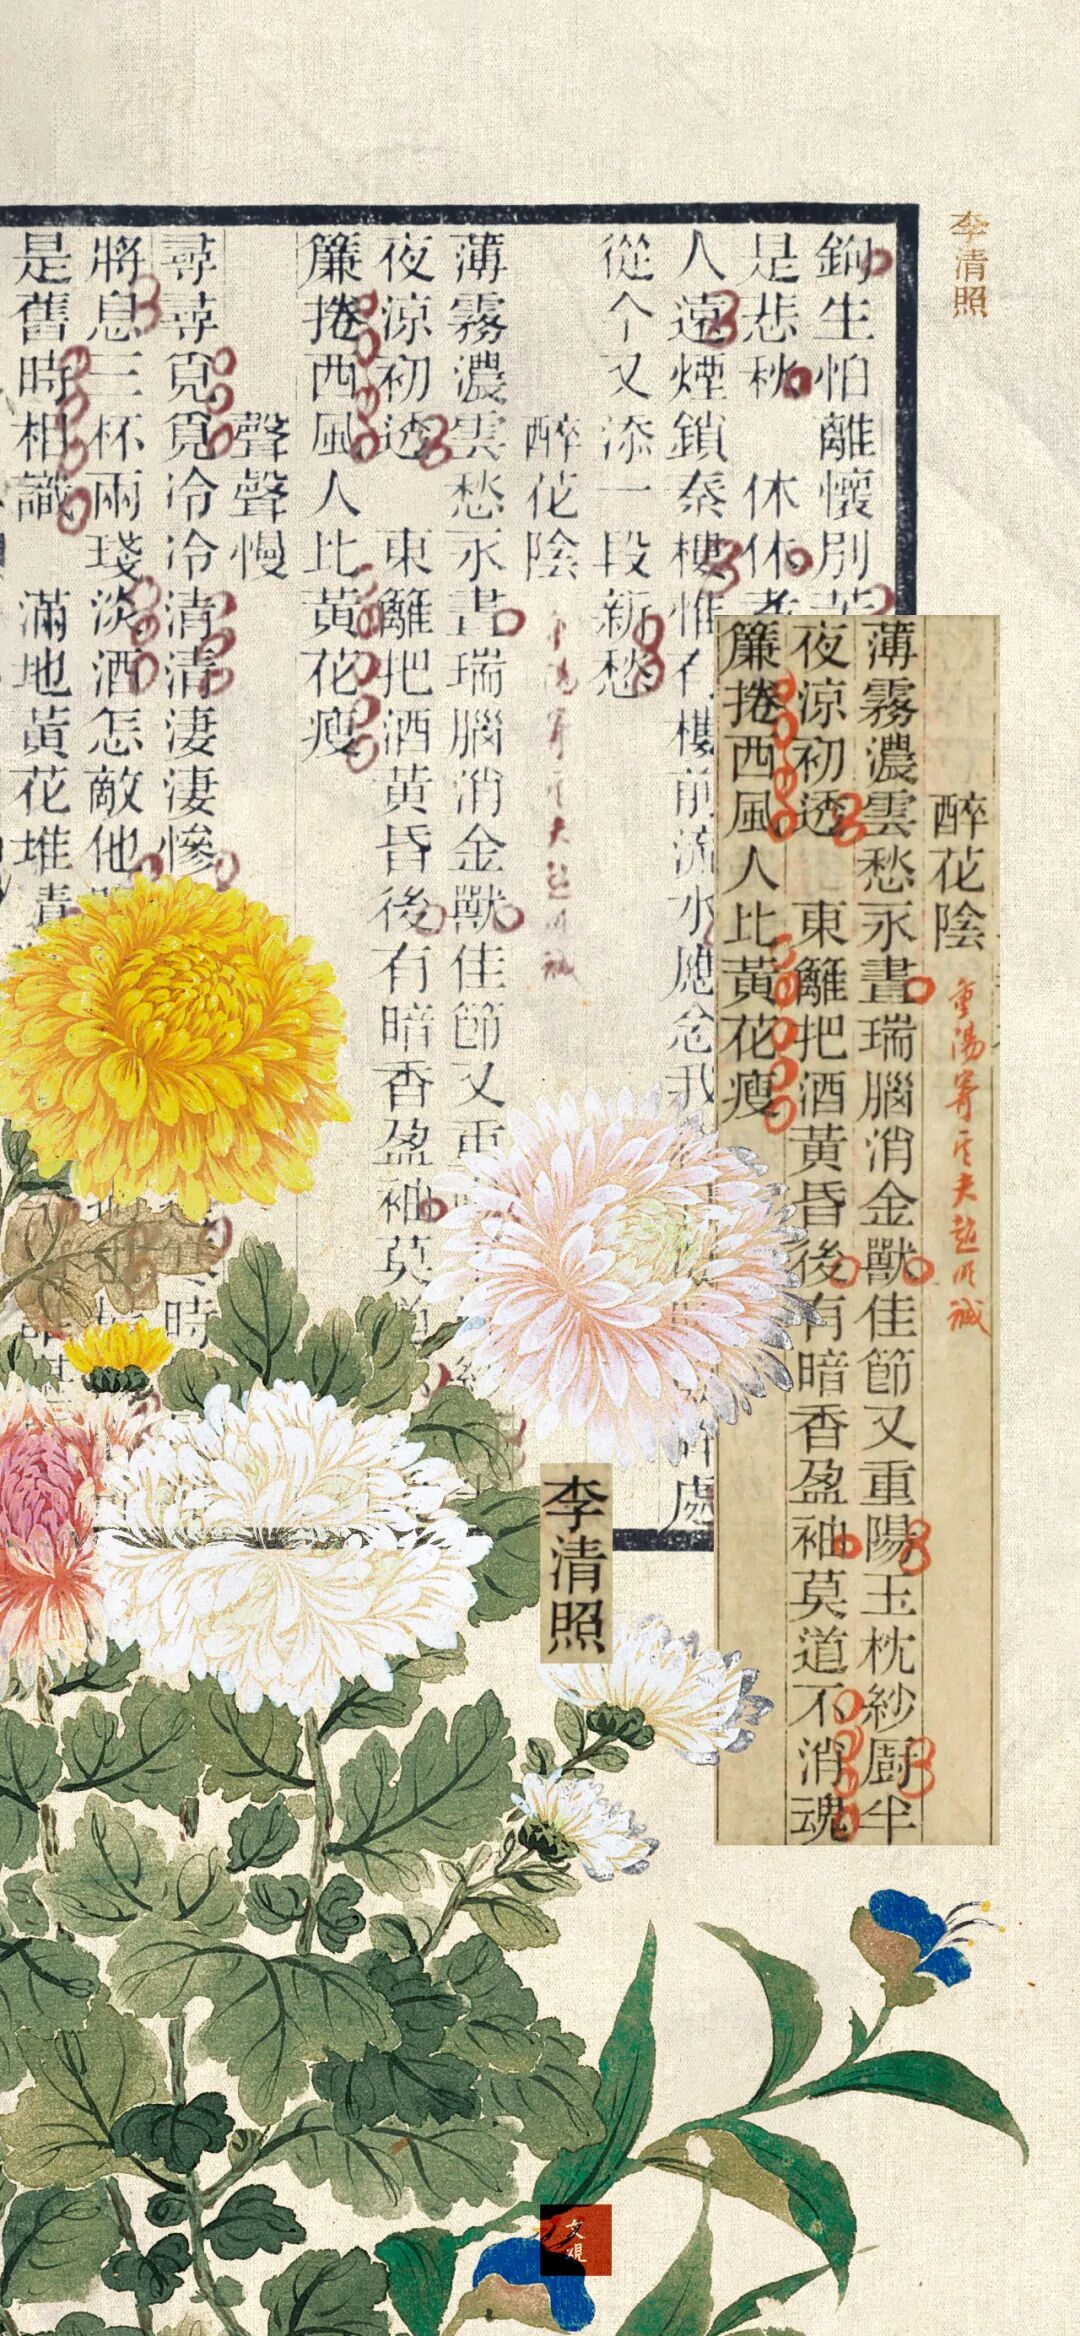 李清照
鉤生怕離懷別
是悲秋　休休
人遠煙鎖秦樓惟有樓前流水應念我
處
從个又添一段新愁
醉花陰
薄霧濃雲愁永晝瑞腦消金獸佳節又重
夜涼初透　東籬把酒黃昏後有暗香盈袖莫道
簾捲西風人比黃花瘦
聲聲慢
尋尋覓覓冷冷清清淒淒慘
時
將息三杯兩琖淡酒怎敵他
是舊時相識　滿地黃花堆
醉花陰
重陽寄夫趙明誠
薄霧濃雲愁永晝瑞腦消金獸佳節又重陽玉枕紗廚半
夜涼初透　東籬把酒黃昏後有暗香盈袖莫道不消魂
簾捲西風人比黃花瘦
李清照
文觀